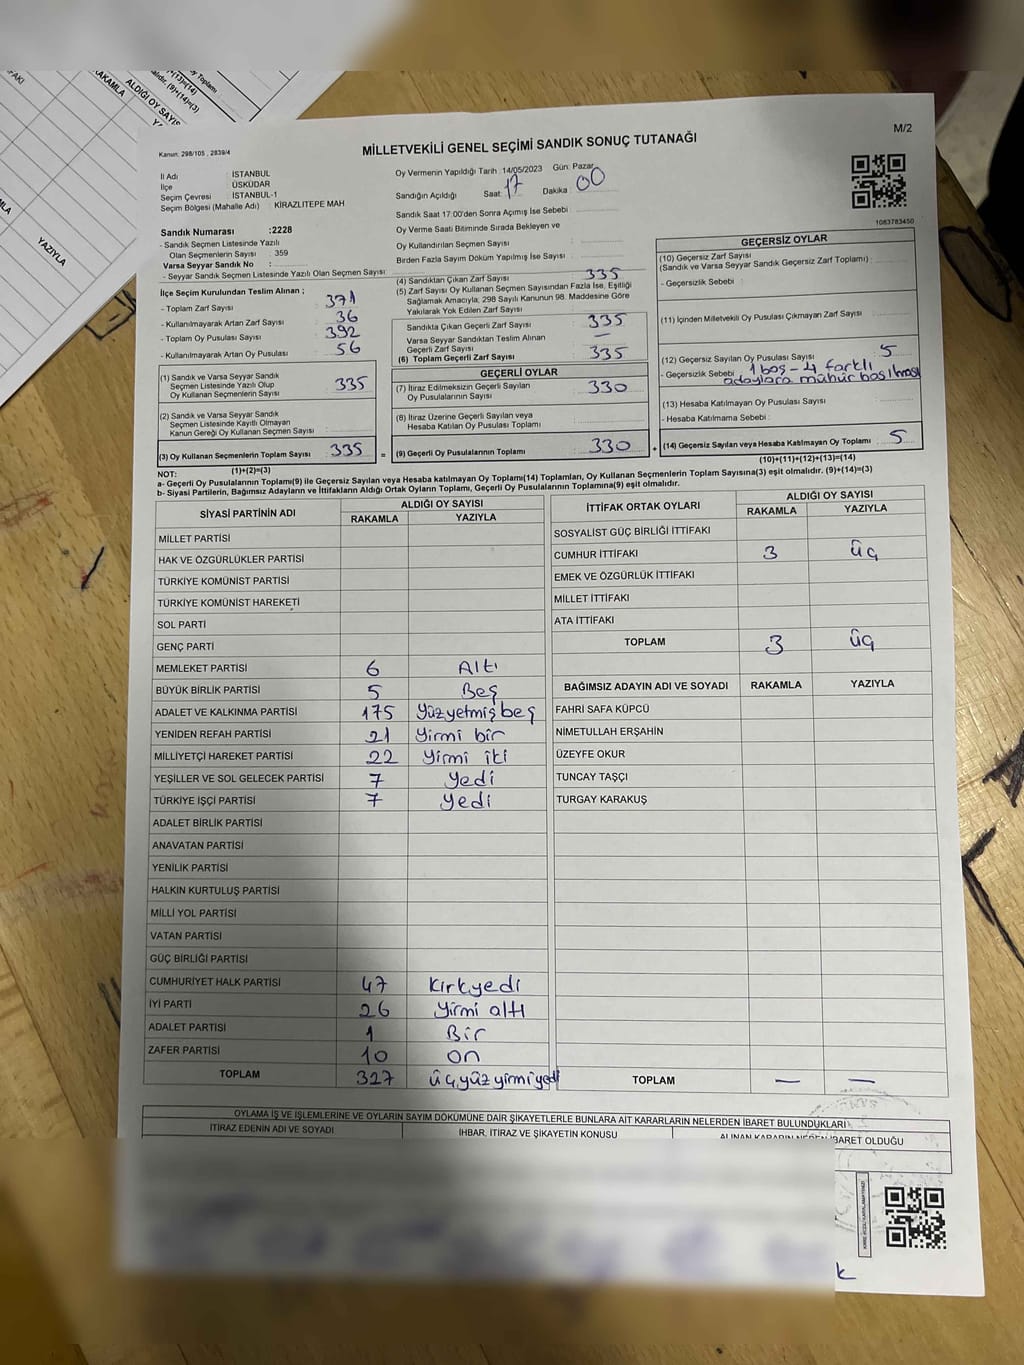 AKI
RAKAMLA
ALDIĞI OY SAYIS
YAZIYLA
Oy Toplamı
)+(13)=(14)
alıdır. (9)+(14)=(3)
M/2
Kanun: 298/105 , 2839/4
MİLLETVEKİLİ GENEL SEÇİMİ SANDIK SONUÇ TUTANAĞI
İl Adı : İSTANBUL
İlçe : ÜSKÜDAR
Seçim Çevresi : İSTANBUL-1
Seçim Bölgesi (Mahalle Adı) : KİRAZLITEPE MAH
Oy Vermenin Yapıldığı Tarih : 14/05/2023 Gün: Pazar
Sandığın Açıldığı Saat: 17 Dakika : 00
Sandık Saat 17.00'den Sonra Açılmış İse Sebebi :
Oy Verme Saati Bitiminde Sırada Bekleyen ve
Oy Kullandırılan Seçmen Sayısı :
Birden Fazla Sayım Döküm Yapılmış İse Sayısı :
1083783450
Sandık Numarası :2228
- Sandık Seçmen Listesinde Yazılı
Olan Seçmenlerin Sayısı : 359
Varsa Seyyar Sandık No :
- Seyyar Sandık Seçmen Listesinde Yazılı Olan Seçmen Sayısı :
İlçe Seçim Kurulundan Teslim Alınan ;
- Toplam Zarf Sayısı : 371
- Kullanılmayarak Artan Zarf Sayısı : 36
- Toplam Oy Pusulası Sayısı : 392
- Kullanılmayarak Artan Oy Pusulası : 56
(1) Sandık ve Varsa Seyyar Sandık
Seçmen Listesinde Yazılı Olup
Oy Kullanan Seçmenlerin Sayısı : 335
(2) Sandık ve Varsa Seyyar Sandık
Seçmen Listesinde Kayıtlı Olmayan
Kanun Gereği Oy Kullanan Seçmen Sayısı :
(3) Oy Kullanan Seçmenlerin Toplam Sayısı : 335 =
(1)+(2)=(3)
(4) Sandıktan Çıkan Zarf Sayısı : 335
(5) Zarf Sayısı Oy Kullanan Seçmen Sayısından Fazla İse, Eşitliği
Sağlamak Amacıyla, 298 Sayılı Kanunun 98. Maddesine Göre
Yakılarak Yok Edilen Zarf Sayısı :
Sandıkta Çıkan Geçerli Zarf Sayısı : 335
Varsa Seyyar Sandıktan Teslim Alınan
Geçerli Zarf Sayısı :
(6) Toplam Geçerli Zarf Sayısı : 335
GEÇERLİ OYLAR
(7) İtiraz Edilmeksizin Geçerli Sayılan
Oy Pusulalarının Sayısı : 330
(8) İtiraz Üzerine Geçerli Sayılan veya
Hesaba Katılan Oy Pusulası Toplamı :
(9) Geçerli Oy Pusulalarının Toplamı : 330 +
GEÇERSİZ OYLAR
(10) Geçersiz Zarf Sayısı
(Sandık ve Varsa Seyyar Sandık Geçersiz Zarf Toplamı) :
- Geçersizlik Sebebi :
(11) İçinden Milletvekili Oy Pusulası Çıkmayan Zarf Sayısı :
(12) Geçersiz Sayılan Oy Pusulası Sayısı : 5
- Geçersizlik Sebebi : 1 boş - 4 farklı
adaylara mühür basılması
(13) Hesaba Katılmayan Oy Pusulası Sayısı :
- Hesaba Katılmama Sebebi :
(14) Geçersiz Sayılan veya Hesaba Katılmayan Oy Toplamı : 5
(10)+(11)+(12)+(13)=(14)
NOT:
a- Geçerli Oy Pusulalarının Toplamı(9) ile Geçersiz Sayılan veya Hesaba katılmayan Oy Toplamı(14) Toplamları, Oy Kullanan Seçmenlerin Toplam Sayısına(3) eşit olmalıdır. (9)+(14)=(3)
b- Siyasi Partilerin, Bağımsız Adayların ve İttifakların Aldığı Ortak Oyların Toplamı, Geçerli Oy Pusulalarının Toplamına(9) eşit olmalıdır.
SİYASİ PARTİNİN ADI ALDIĞI OY SAYISI
RAKAMLA YAZIYLA
MİLLET PARTİSİ
HAK VE ÖZGÜRLÜKLER PARTİSİ
TÜRKİYE KOMÜNİST PARTİSİ
TÜRKİYE KOMÜNİST HAREKETİ
SOL PARTİ
GENÇ PARTİ
MEMLEKET PARTİSİ 6 Altı
BÜYÜK BİRLİK PARTİSİ 5 Beş
ADALET VE KALKINMA PARTİSİ 175 Yüzyetmişbeş
YENİDEN REFAH PARTİSİ 21 Yirmi bir
MİLLİYETÇİ HAREKET PARTİSİ 22 Yirmi iki
YEŞİLLER VE SOL GELECEK PARTİSİ 7 Yedi
TÜRKİYE İŞÇİ PARTİSİ 7 Yedi
ADALET BİRLİK PARTİSİ
ANAVATAN PARTİSİ
YENİLİK PARTİSİ
HALKIN KURTULUŞ PARTİSİ
MİLLİ YOL PARTİSİ
VATAN PARTİSİ
GÜÇ BİRLİĞİ PARTİSİ
CUMHURİYET HALK PARTİSİ 47 Kırkyedi
İYİ PARTİ 26 Yirmi altı
ADALET PARTİSİ 1 Bir
ZAFER PARTİSİ 10 On
TOPLAM 327 üçyüzyirmiyedi
İTTİFAK ORTAK OYLARI ALDIĞI OY SAYISI
RAKAMLA YAZIYLA
SOSYALİST GÜÇ BİRLİĞİ İTTİFAKI
CUMHUR İTTİFAKI 3 üç
EMEK VE ÖZGÜRLÜK İTTİFAKI
MİLLET İTTİFAKI
ATA İTTİFAKI
TOPLAM 3 üç
BAĞIMSIZ ADAYIN ADI VE SOYADI RAKAMLA YAZIYLA
FAHRİ SAFA KÜPCÜ
NİMETULLAH ERŞAHİN
ÜZEYFE OKUR
TUNCAY TAŞÇI
TURGAY KARAKUŞ
TOPLAM — —
OYLAMA İŞ VE İŞLEMLERİNE VE OYLARIN SAYIM DÖKÜMÜNE DAİR ŞİKAYETLERLE BUNLARA AİT KARARLARIN NELERDEN İBARET BULUNDUKLARI
İTİRAZ EDENİN ADI VE SOYADI İHBAR, İTİRAZ VE ŞİKAYETİN KONUSU ALINAN KARARIN NEDEN İBARET OLDUĞU